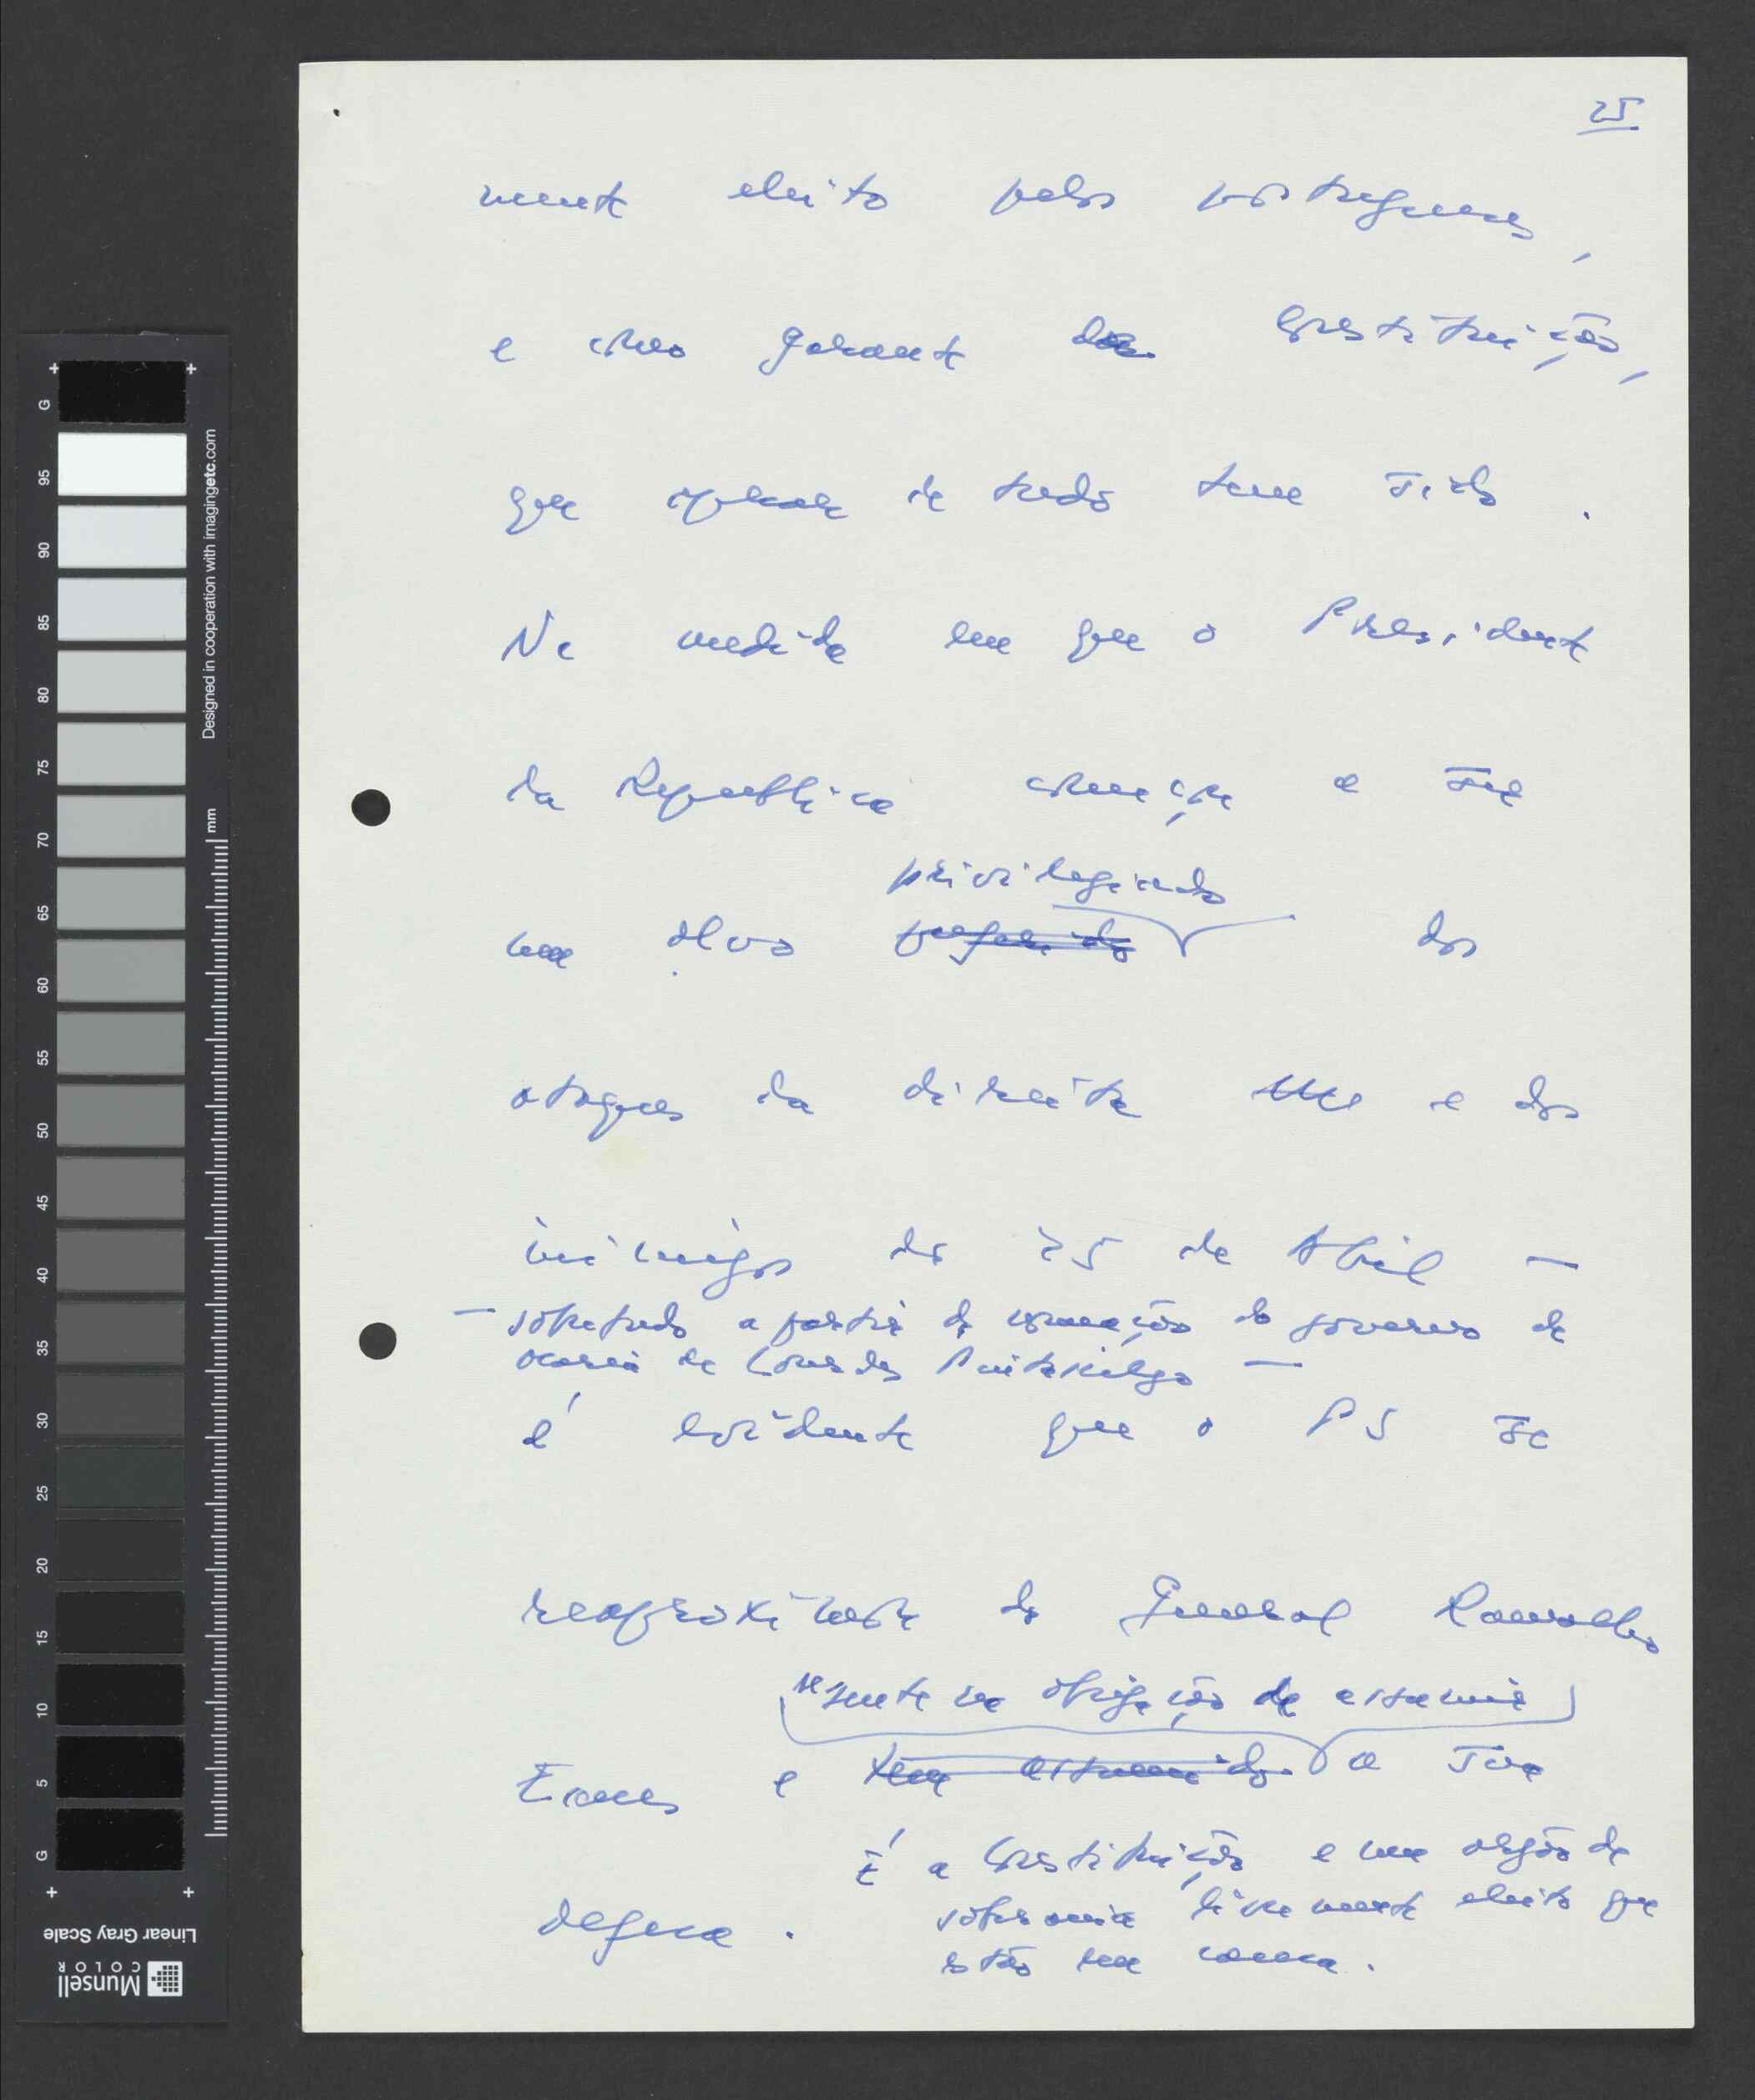 25
mente eleito pelos portugueses,
e como garante da Constituição,
que apesar de tudo tem sido.
Na medida em que o Presidente
da Republica começa a ser
privilegiado
um alvo preferido dos
ataques da direita e dos
inimigos do 25 de Abril —
— sobretudo a partir da formação do governo de
Maria de Lourdes Pintasilgo —
é evidente que o PS se
reaproxima do General Ramalho
se sente na obrigação de assumir
Eanes e tem assumido a sua
É a Constituição e um orgão de
defesa. soberania livremente eleito que
estão em causa.
G 95 90 85 80 75 70 65 60 55 50 45 40 35 30 25 20 15 10 5 G
Designed in cooperation with imagingetc.com
mm
Munsell
COLOR
Linear Gray Scale